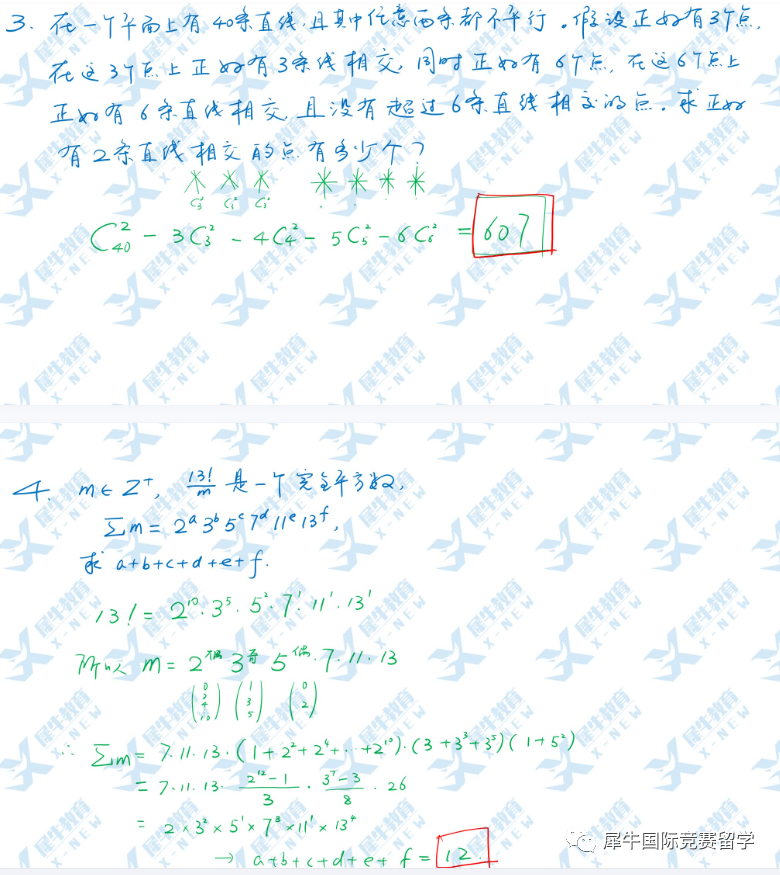 3. 在一个平面上有40条直线,且其中任意两条都不平行。假设正好有3个点,
在这3个点上正好有3条线相交,同时正好有6个点,在这6个点上
正好有6条直线相交,且没有超过6条直线相交的点。求正好
有2条直线相交的点有多少个?
C₄₀² - 3C₃² - 4C₄² - 5C₅² - 6C₆² = 607
4. m∈Z⁺, 13!/m 是一个完全平方数,
∑m = 2ᵃ3ᵇ5ᶜ7ᵈ11ᵉ13ᶠ,
求 a+b+c+d+e+f.
13! = 2¹⁰·3⁵·5²·7¹·11¹·13¹
所以 m = 2^偶 3^奇 5^偶·7·11·13
∴ ∑m = 7·11·13·(1+2²+2⁴+···+2¹⁰)·(3+3³+3⁵)(1+5²)
= 7·11·13· (2¹²-1)/3 · (3⁷-3)/8 · 26
= 2×3²×5¹×7³×11¹×13⁴
→ a+b+c+d+e+f = 12.
犀牛国际竞赛留学
犀牛教育
X-NEW